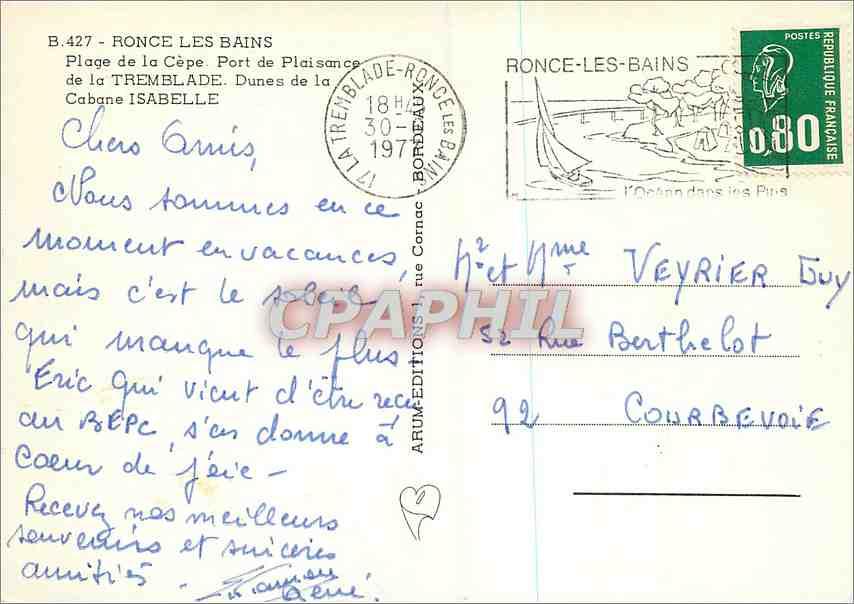 B.427 - RONCE LES BAINS
Plage de la Cèpe. Port de Plaisance
de la TREMBLADE. Dunes de la
Cabane ISABELLE
Chers Amis,
Nous sommes en ce
moment en vacances,
mais c'est le soleil
qui manque le plus -
Eric qui vient d'être reçu
au BEPC, s'en donne à
coeur de j
Recevez nos meilleurs
souvenirs et sincères
amitiés.
René
ARUM-EDITIONS 1, rue Cornac - BORDEAUX
17 LA TREMBLADE-RONCE LES BAINS
18H
30-
197
RONCE-LES-BAINS
l'Océan dans les Pins
POSTES
REPUBLIQUE FRANÇAISE
0,80
Mr et Mme VEYRIER Guy
52 Rue Berthelot
92 COURBEVOIE
CPAPHIL